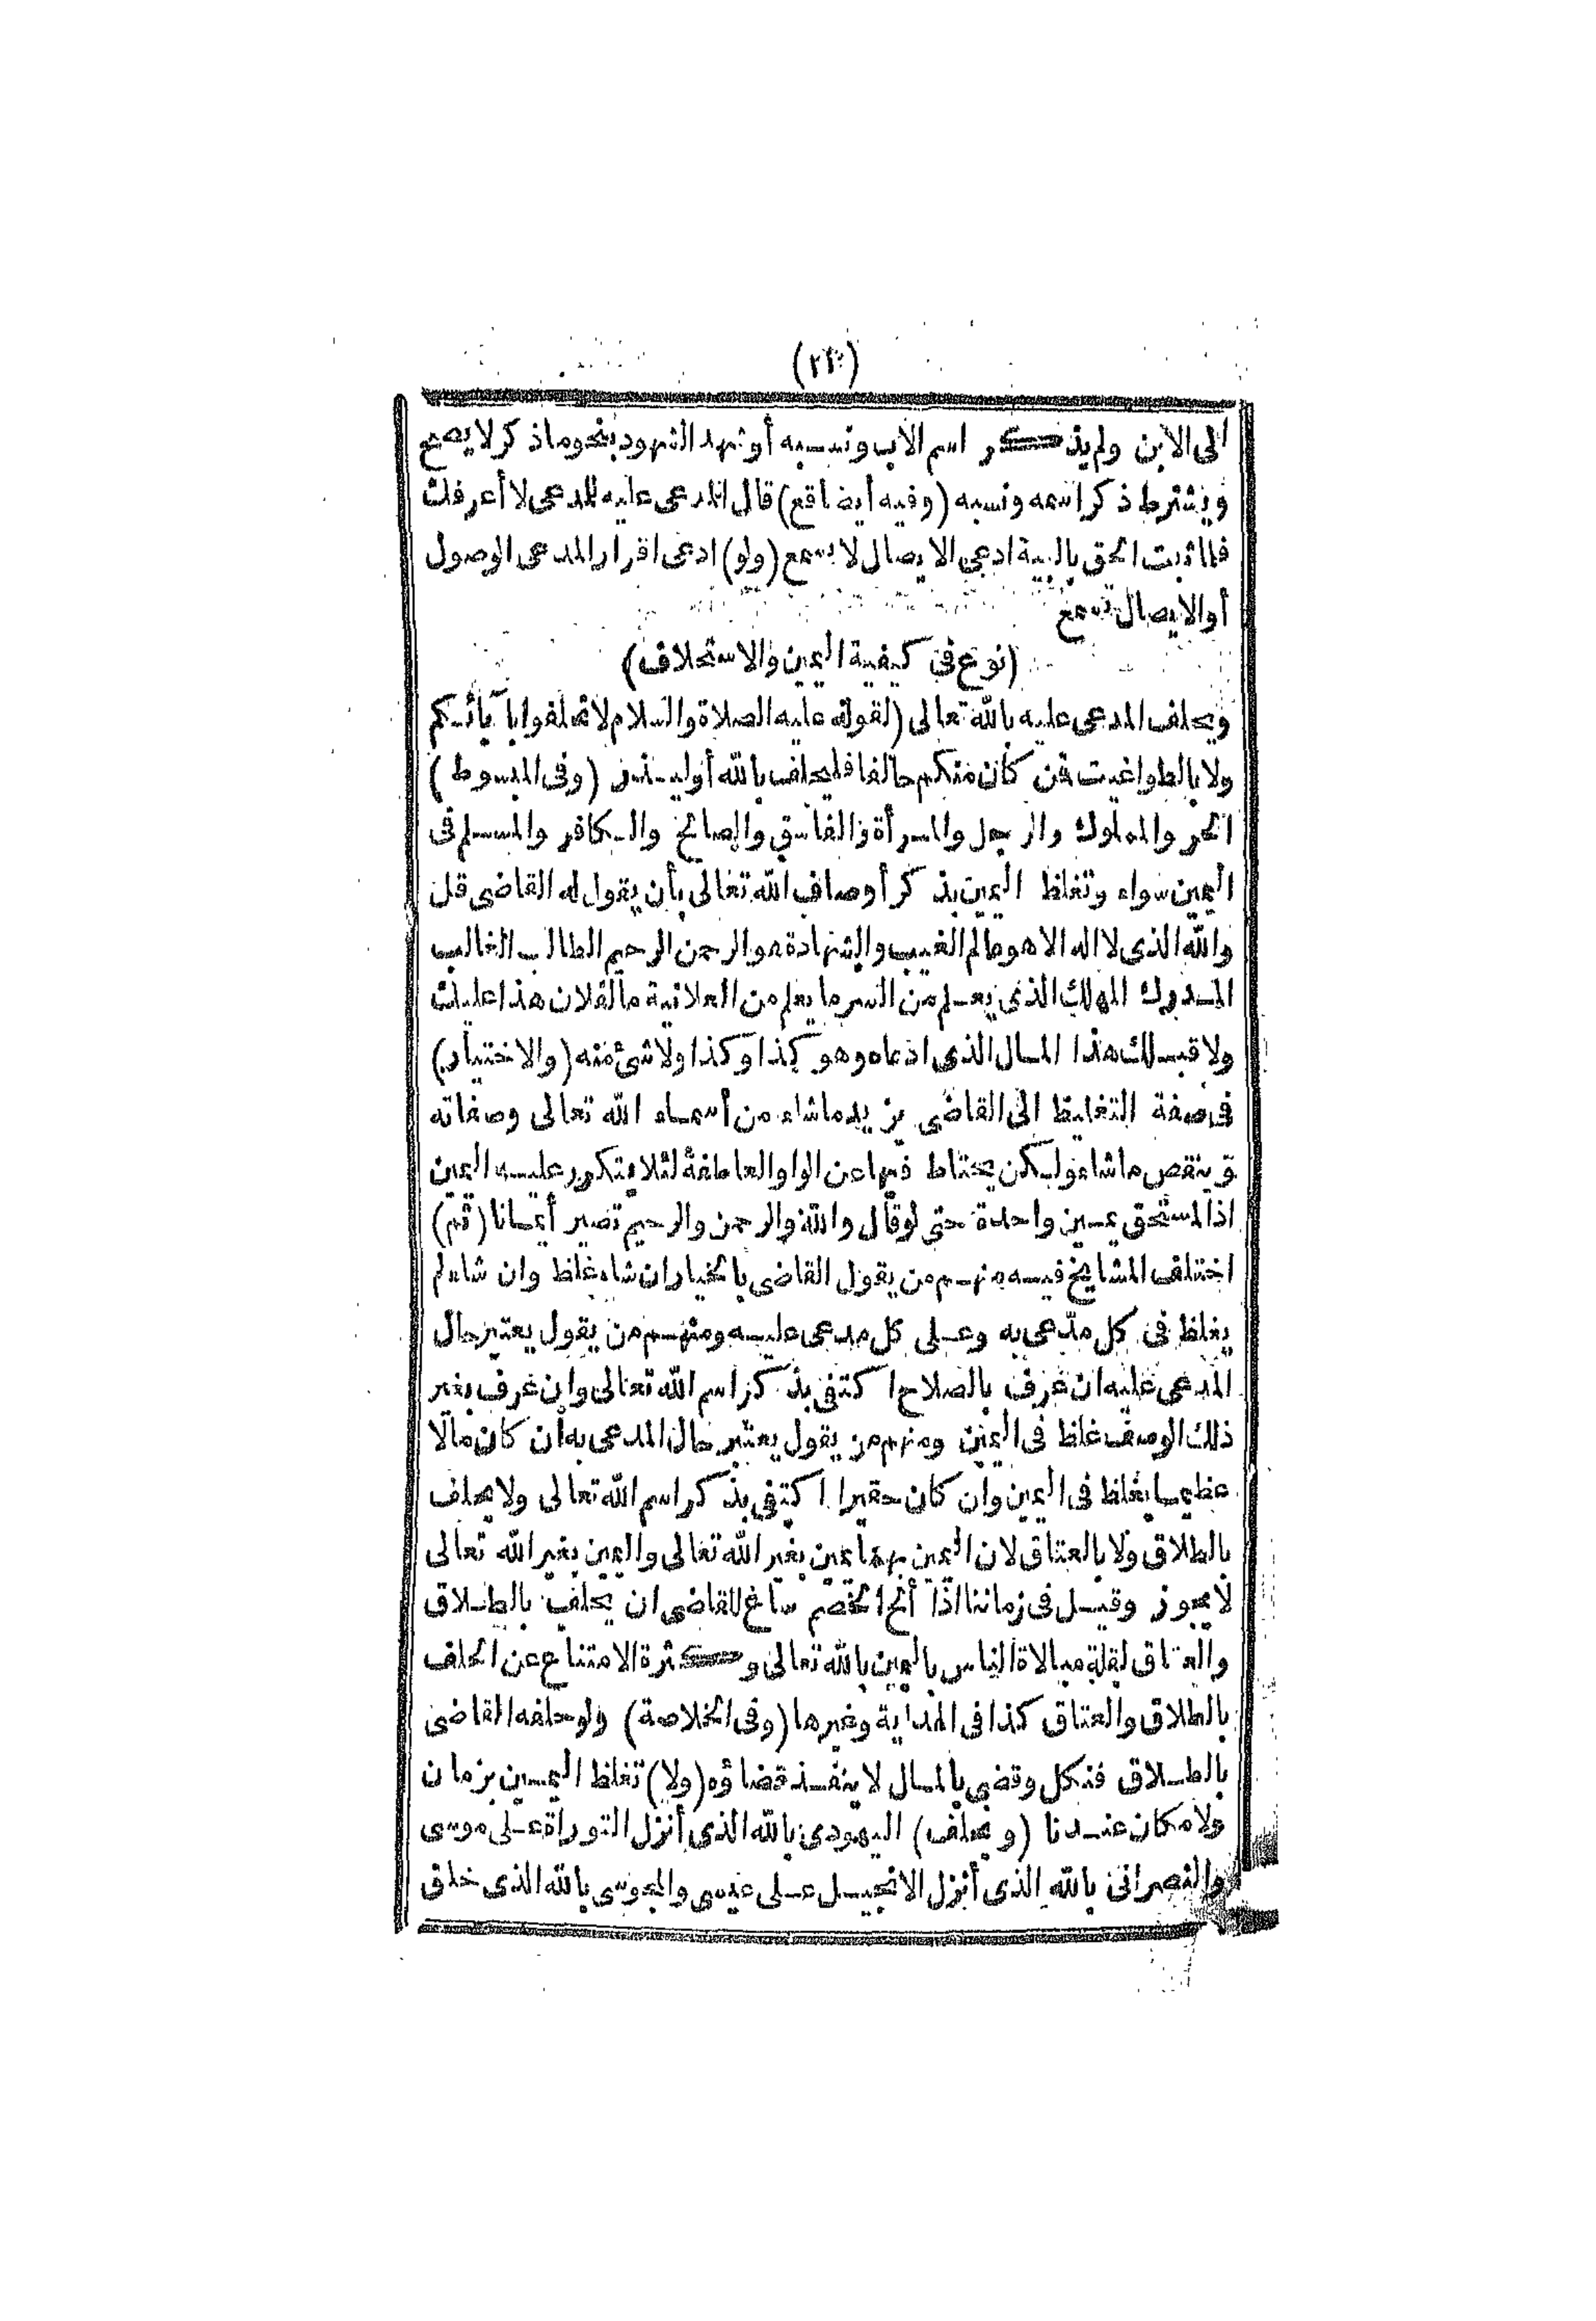 الى الابن ولم يذكر اسم الاب ونسبه أو شهد الشهود بنحو ما ذكر لا يصح
ويشترط ذكر اسمه ونسبه (وفيه أيضا قع) قال المدعى عليه للمدعى لا أعرفك
فلما ثبت الحق بالبينة ادعى الايصال لا يسمع (ولو) ادعى اقرار المدعى الوصول
أو الايصال تسمع
(نوع فى كيفية اليمين والاستحلاف)
ويحلف المدعى عليه بالله تعالى (لقوله عليه الصلاة والسلام لا تحلفوا بآبائكم
ولا بالطواغيت فمن كان منكم حالفا فليحلف بالله أو ليذر (وفى المبسوط)
الحر والمملوك والرجل والمرأة والفاسق والصالح والكافر والمسلم فى
اليمين سواء وتغلظ اليمين بذكر أوصاف الله تعالى بأن يقول له القاضى قل
والله الذى لا اله الا هو عالم الغيب والشهادة هو الرحمن الرحيم الطالب الغالب
المدرك المهلك الذى يعلم من السر ما يعلم من العلانية ما لفلان هذا عليك
ولا قبلك هذا المال الذى ادعاه وهو كذا وكذا ولا شئ منه (والاختيار)
فى صفة التغليظ الى القاضى يزيد ما شاء من أسماء الله تعالى وصفاته
وينقص ما شاء ولكن يحتاط فيها عن الواو العاطفة لئلا يتكرر عليه اليمين
اذ المستحق يمين واحدة حتى لو قال والله والرحمن والرحيم تصير أيمانا (ثم)
اختلف المشايخ فيه منهم من يقول القاضى بالخيار ان شاء غلظ وان شاء لم
يغلظ فى كل مدعى به وعلى كل مدعى عليه ومنهم من يقول يعتبر حال
المدعى عليه ان عرف بالصلاح اكتفى بذكر اسم الله تعالى وان عرف بغير
ذلك الوصف غلظ فى اليمين ومنهم من يقول يعتبر حال المدعى به ان كان مالا
عظيما يغلظ فى اليمين وان كان حقيرا اكتفى بذكر اسم الله تعالى ولا يحلف
بالطلاق ولا بالعتاق لان اليمين بهما يمين بغير الله تعالى واليمين بغير الله تعالى
لا يجوز وقيل فى زماننا اذا ألح الخصم ساغ للقاضى ان يحلف بالطلاق
والعتاق لقلة مبالاة الناس باليمين بالله تعالى وكثرة الامتناع عن الحلف
بالطلاق والعتاق كذا فى الهداية وغيرها (وفى الخلاصة) ولو حلفه القاضى
بالطلاق فنكل وقضى بالمال لا ينفذ قضاؤه (ولا) تغلظ اليمين بزمان
ولا مكان عندنا (ويحلف) اليهودى بالله الذى أنزل التوراة على موسى
والنصرانى بالله الذى أنزل الانجيل على عيسى والمجوسى بالله الذى خلق